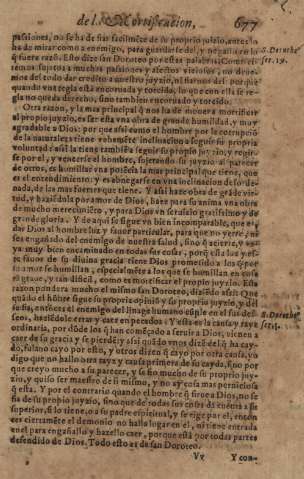 de la Mortificacion, 677
passiones, no se ha de fiar facilmẽte de su proprio juizio, antes lo
ha de mirar como a enemigo, para guardarse del, y no
fuera razõ. Esto dize san Doroteo por estas palabras: Como es-
temos sujetos a muchas passiones y afectos viciosos, no deue-
mos del todo dar credito a nuestro juyzio, ni fiarnos del: por que
quando vna regla està encoruada y torcida, lo que con ella se re-
gla no queda derecho, sino tambien encoruado y torcido.
S. Doroteo
ser. 19.
Otra razon, y la mas principal q̃ nos ha de mouer a mortificar
el proprio juyzio, es ser esta vna obra de grande humildad, y muy
agradable a Dios: por que assi como el hombre por la corrupciõ
de la naturaleza tiene vehemẽte inclinaciõ a seguir su propria
voluntad: assi la tiene tambiẽ a seguir su proprio juyzio, y regir-
se por el, y vencerse el hombre, sujetando su juyzio al parecer
de otros, es humillar vna potẽcia la mas principal que tiene, que
es el entendimiento: y es abnegarse en vna inclinacion desorde-
nada, de las mas fuertes que tiene. Y assi haze obra de grãde vir-
tud, y haziẽdola por amor de Dios, haze para su anima vna obra
de mucho merecimiẽto, y para Dios vn seruicio gratissimo y de
grande gloria. Y de aqui se sigue vn bien incomparable, que es
dar Dios al hombre luz y fauor particular, para que no yerre, ni
sea engañado del enemigo de nuestra salud, sino q̃ acierte, y va-
ya muy bien encaminado en todas sus cosas, porq̃ esta luz y es-
te fauor de su diuina gracia tiene Dios prometido a los que por
su amor se humillan, especialmẽte a los que se humillan en cosa
tã grande, y tan dificil, como es mortificar el proprio juyzio. Esta
razon pondera mucho el mismo san Doroteo, diziẽdo assi: Que
quãdo el hõbre sigue su propria opiniõ y su proprio juyzio, y del
se fia, entõces el enemigo del linage humano
haziẽdole errar y caer en pecados: Y esta es la causa
ordinaria, por dõde los q̃ han començado a seruir a Dios, vienen a
caer de su gracia y se pierdẽ: y assi quãdo vnos dizẽ del q̃ ha cay-
do, fulano cayo por esto, y otros dizẽ q̃ cayo por otra causa, yo
digo que no hallo otra rayz y causa primera de su cayda, sino por
que creyo mucho a su parecer, y se fio mucho de su proprio juy-
zio, y quiso ser maestro de si mismo, y no ay cosa mas perniciosa
S. Doroteo
q̃ esta. Y por el contrario quando el hombre q̃ sirue a Dios, no se
fia de su proprio juyzio, sino que de todas sus cosas da cuenta a su
superior, si lo tiene, o a su padre espiritual, y se rige por el, entõn-
ces ciertamẽte el demonio no halla lugar en el, ni tiene entrada
en el para engañallo y hazello caer, porque està por todas partes
defendido de Dios. Todo esto es de san Doroteo.
Vv Y con-